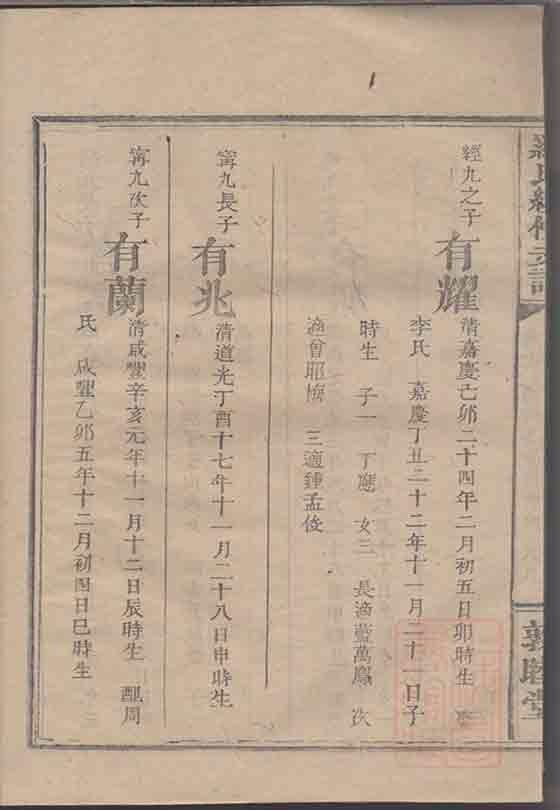 經九之子
有耀
清嘉慶己卯二十四年二月初五日卯時生
李氏 嘉慶丁丑二十二年十一月二十一日子
時生 子一 丁應 女三 長適藍萬鳳 次
適曾耶 三適鍾孟
甯九長子
有兆
清道光丁酉十七年十一月二十八日申時生
甯九次子
有蘭
清咸豐辛亥元年十一月十二日辰時生 配周
氏 咸豐乙卯五年十二月初四日巳時生
敦睦堂